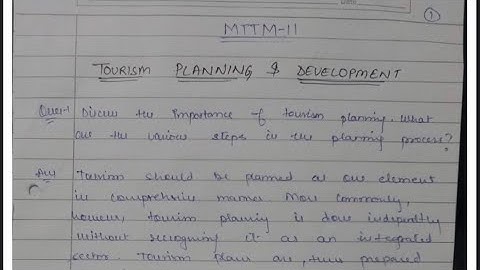 ①
MTTM-11
TOURISM PLANNING & DEVELOPMENT
Ques-1 Discuss the importance of tourism planning. What
are the various steps in the planning process?
Ans Tourism should be planned as one element
in comprehensive manner. More commonly,
however, tourism planning is done indepently
without recogning it as an integrated
sector. Tourism plans are, thus prepared